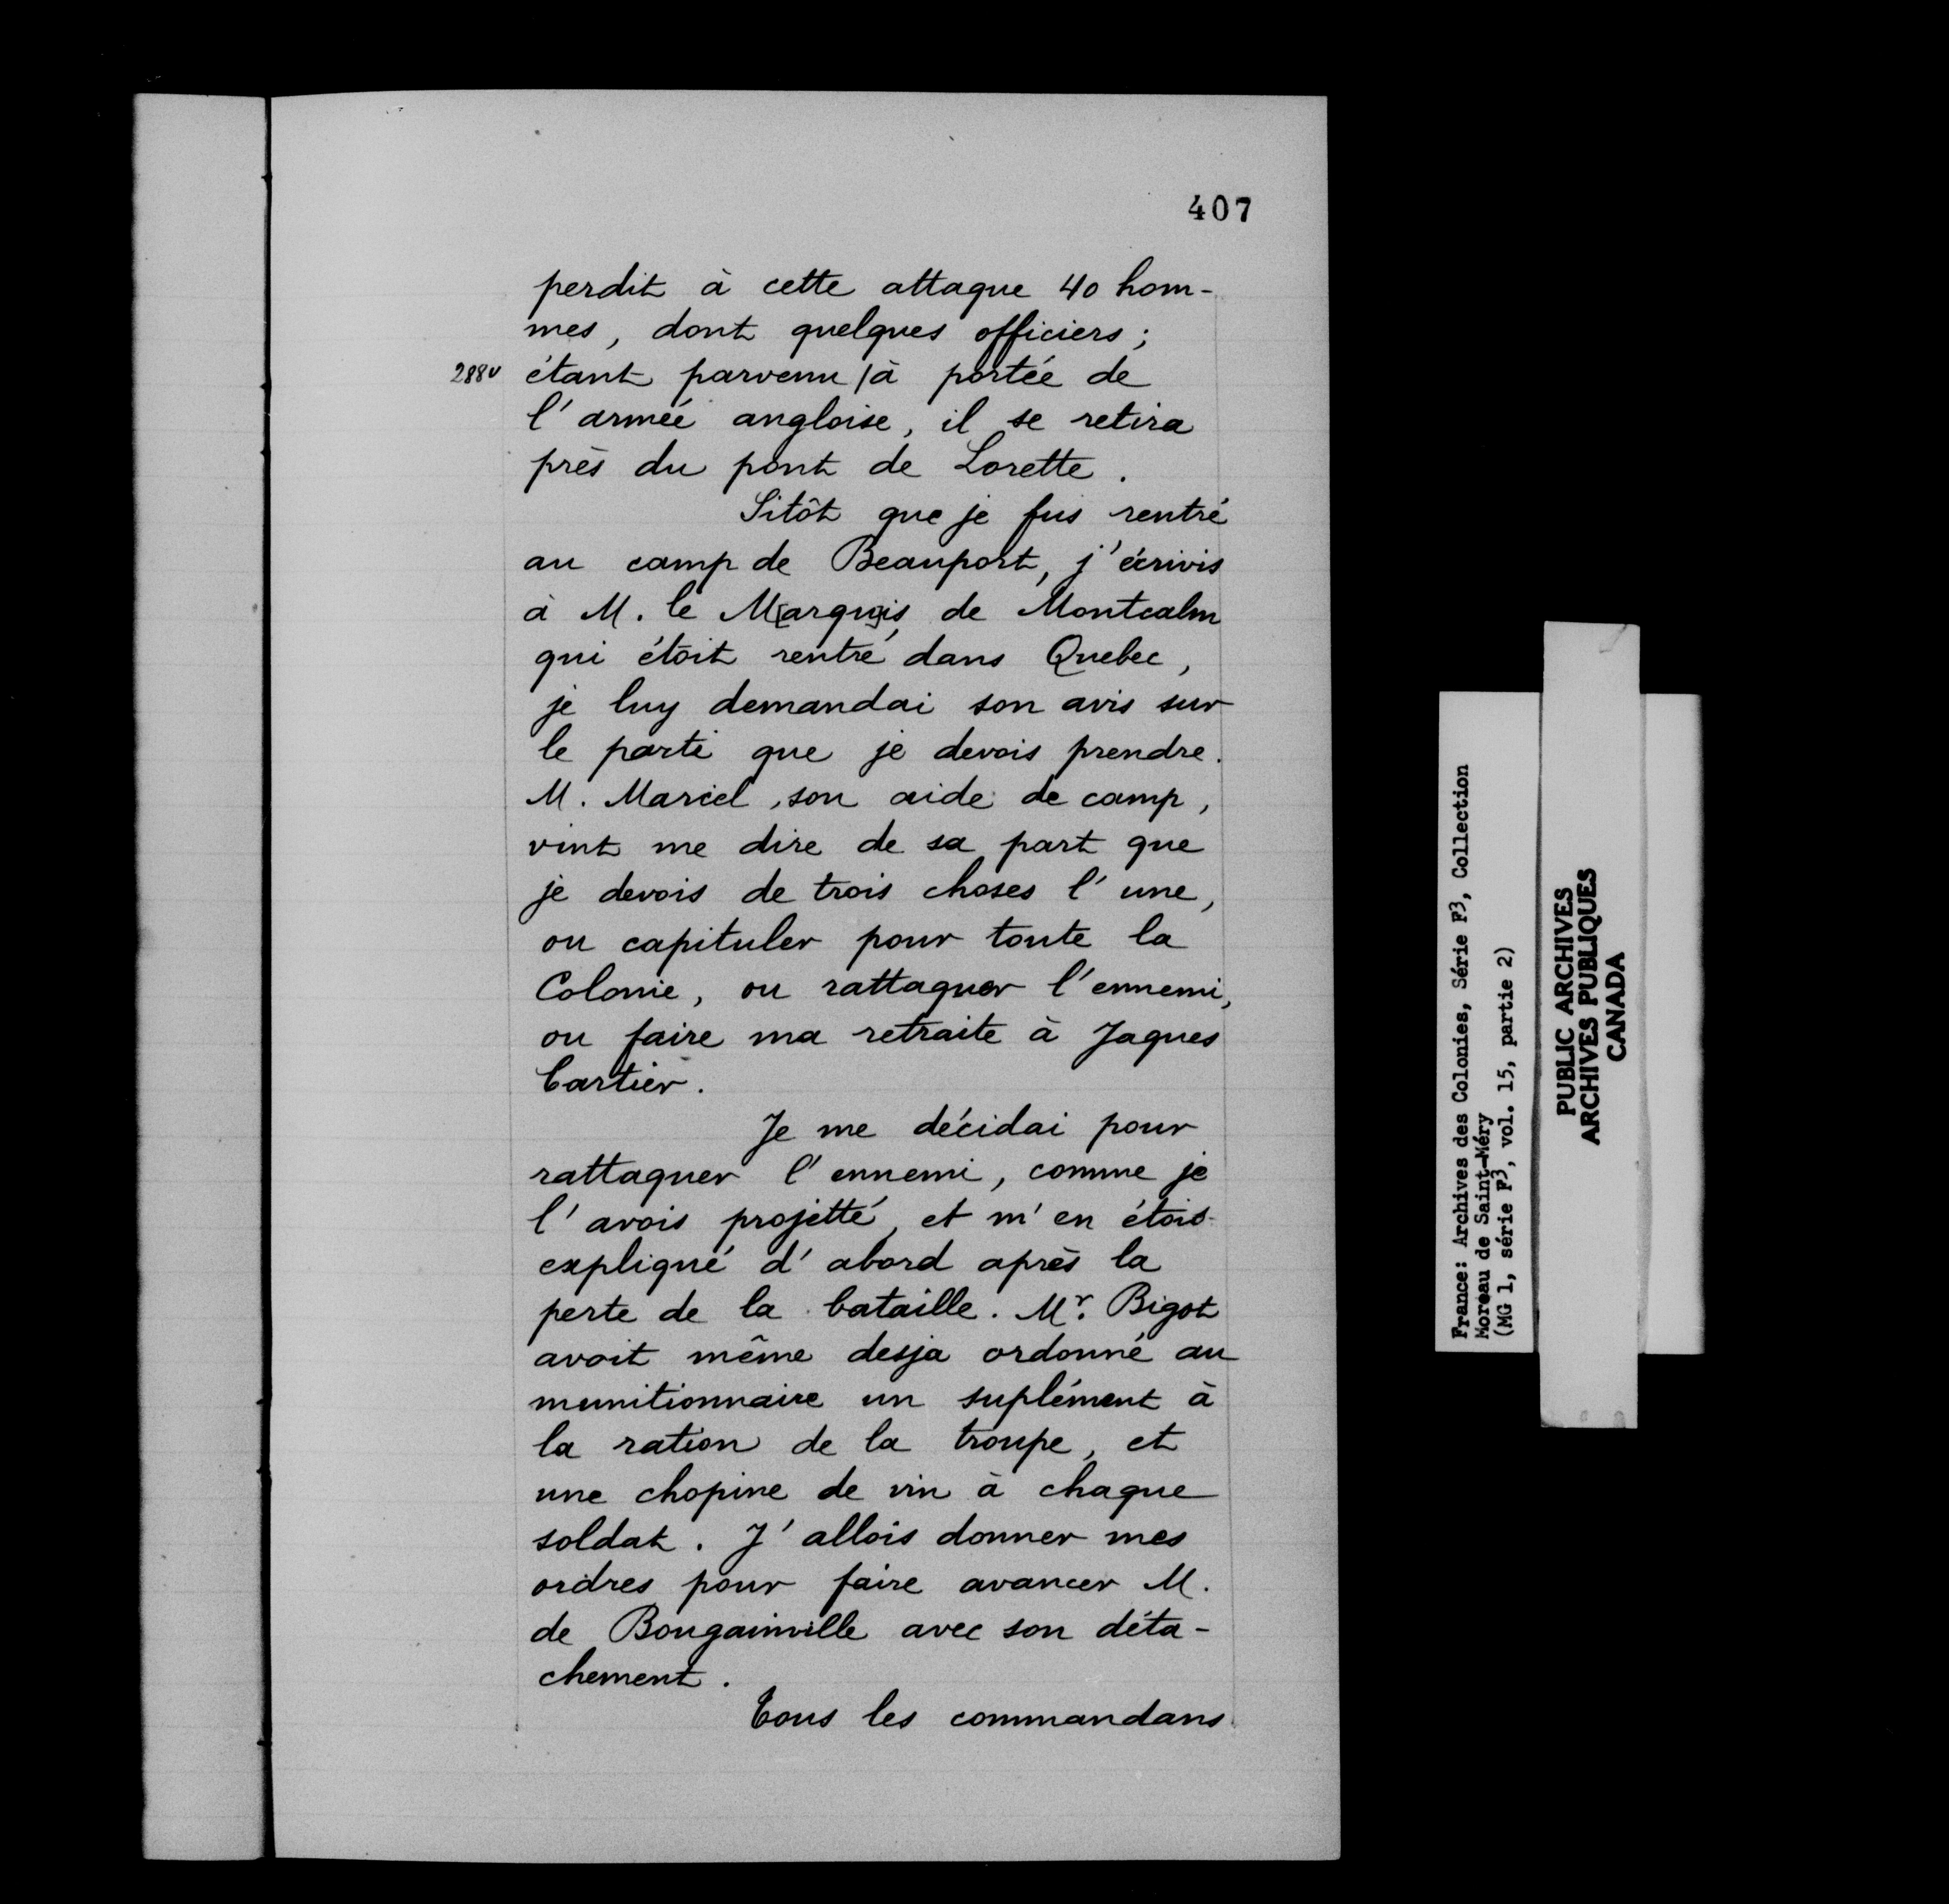 407
perdit à cette attaque 40 hom-
mes, dont quelques officiers;
288v étant parvenu / à portée de
l'armée angloise, il se retira
près du pont de Lorette.
Sitôt que je fus rentré
au camp de Beauport, j'écrivis
à M. le M[arqu]is de Montcalm
qui étoit rentré dans Quebec,
je luy demandai son avis sur
le parti que je devois prendre.
M. Marcel, son aide de camp,
vint me dire de sa part que
je devois de trois choses l'une,
ou capituler pour toute la
Colonie, ou rattaquer l'ennemi,
ou faire ma retraite à Jaques
Cartier.
Je me décidai pour
rattaquer l'ennemi, comme je
l'avois projetté, et m'en étois
expliqué d'abord après la
perte de la bataille. Mr. Bigot
avoit même desja ordonné au
munitionnaire un suplément à
la ration de la troupe, et
une chopine de vin à chaque
soldat. J'allois donner mes
ordres pour faire avancer M.
de Bougainville avec son déta-
chement.
Tous les commandans
France: Archives des Colonies, Série F3, Collection
Moreau de Saint-Méry
(MG 1, série F3, vol. 15, partie 2)
PUBLIC ARCHIVES
ARCHIVES PUBLIQUES
CANADA